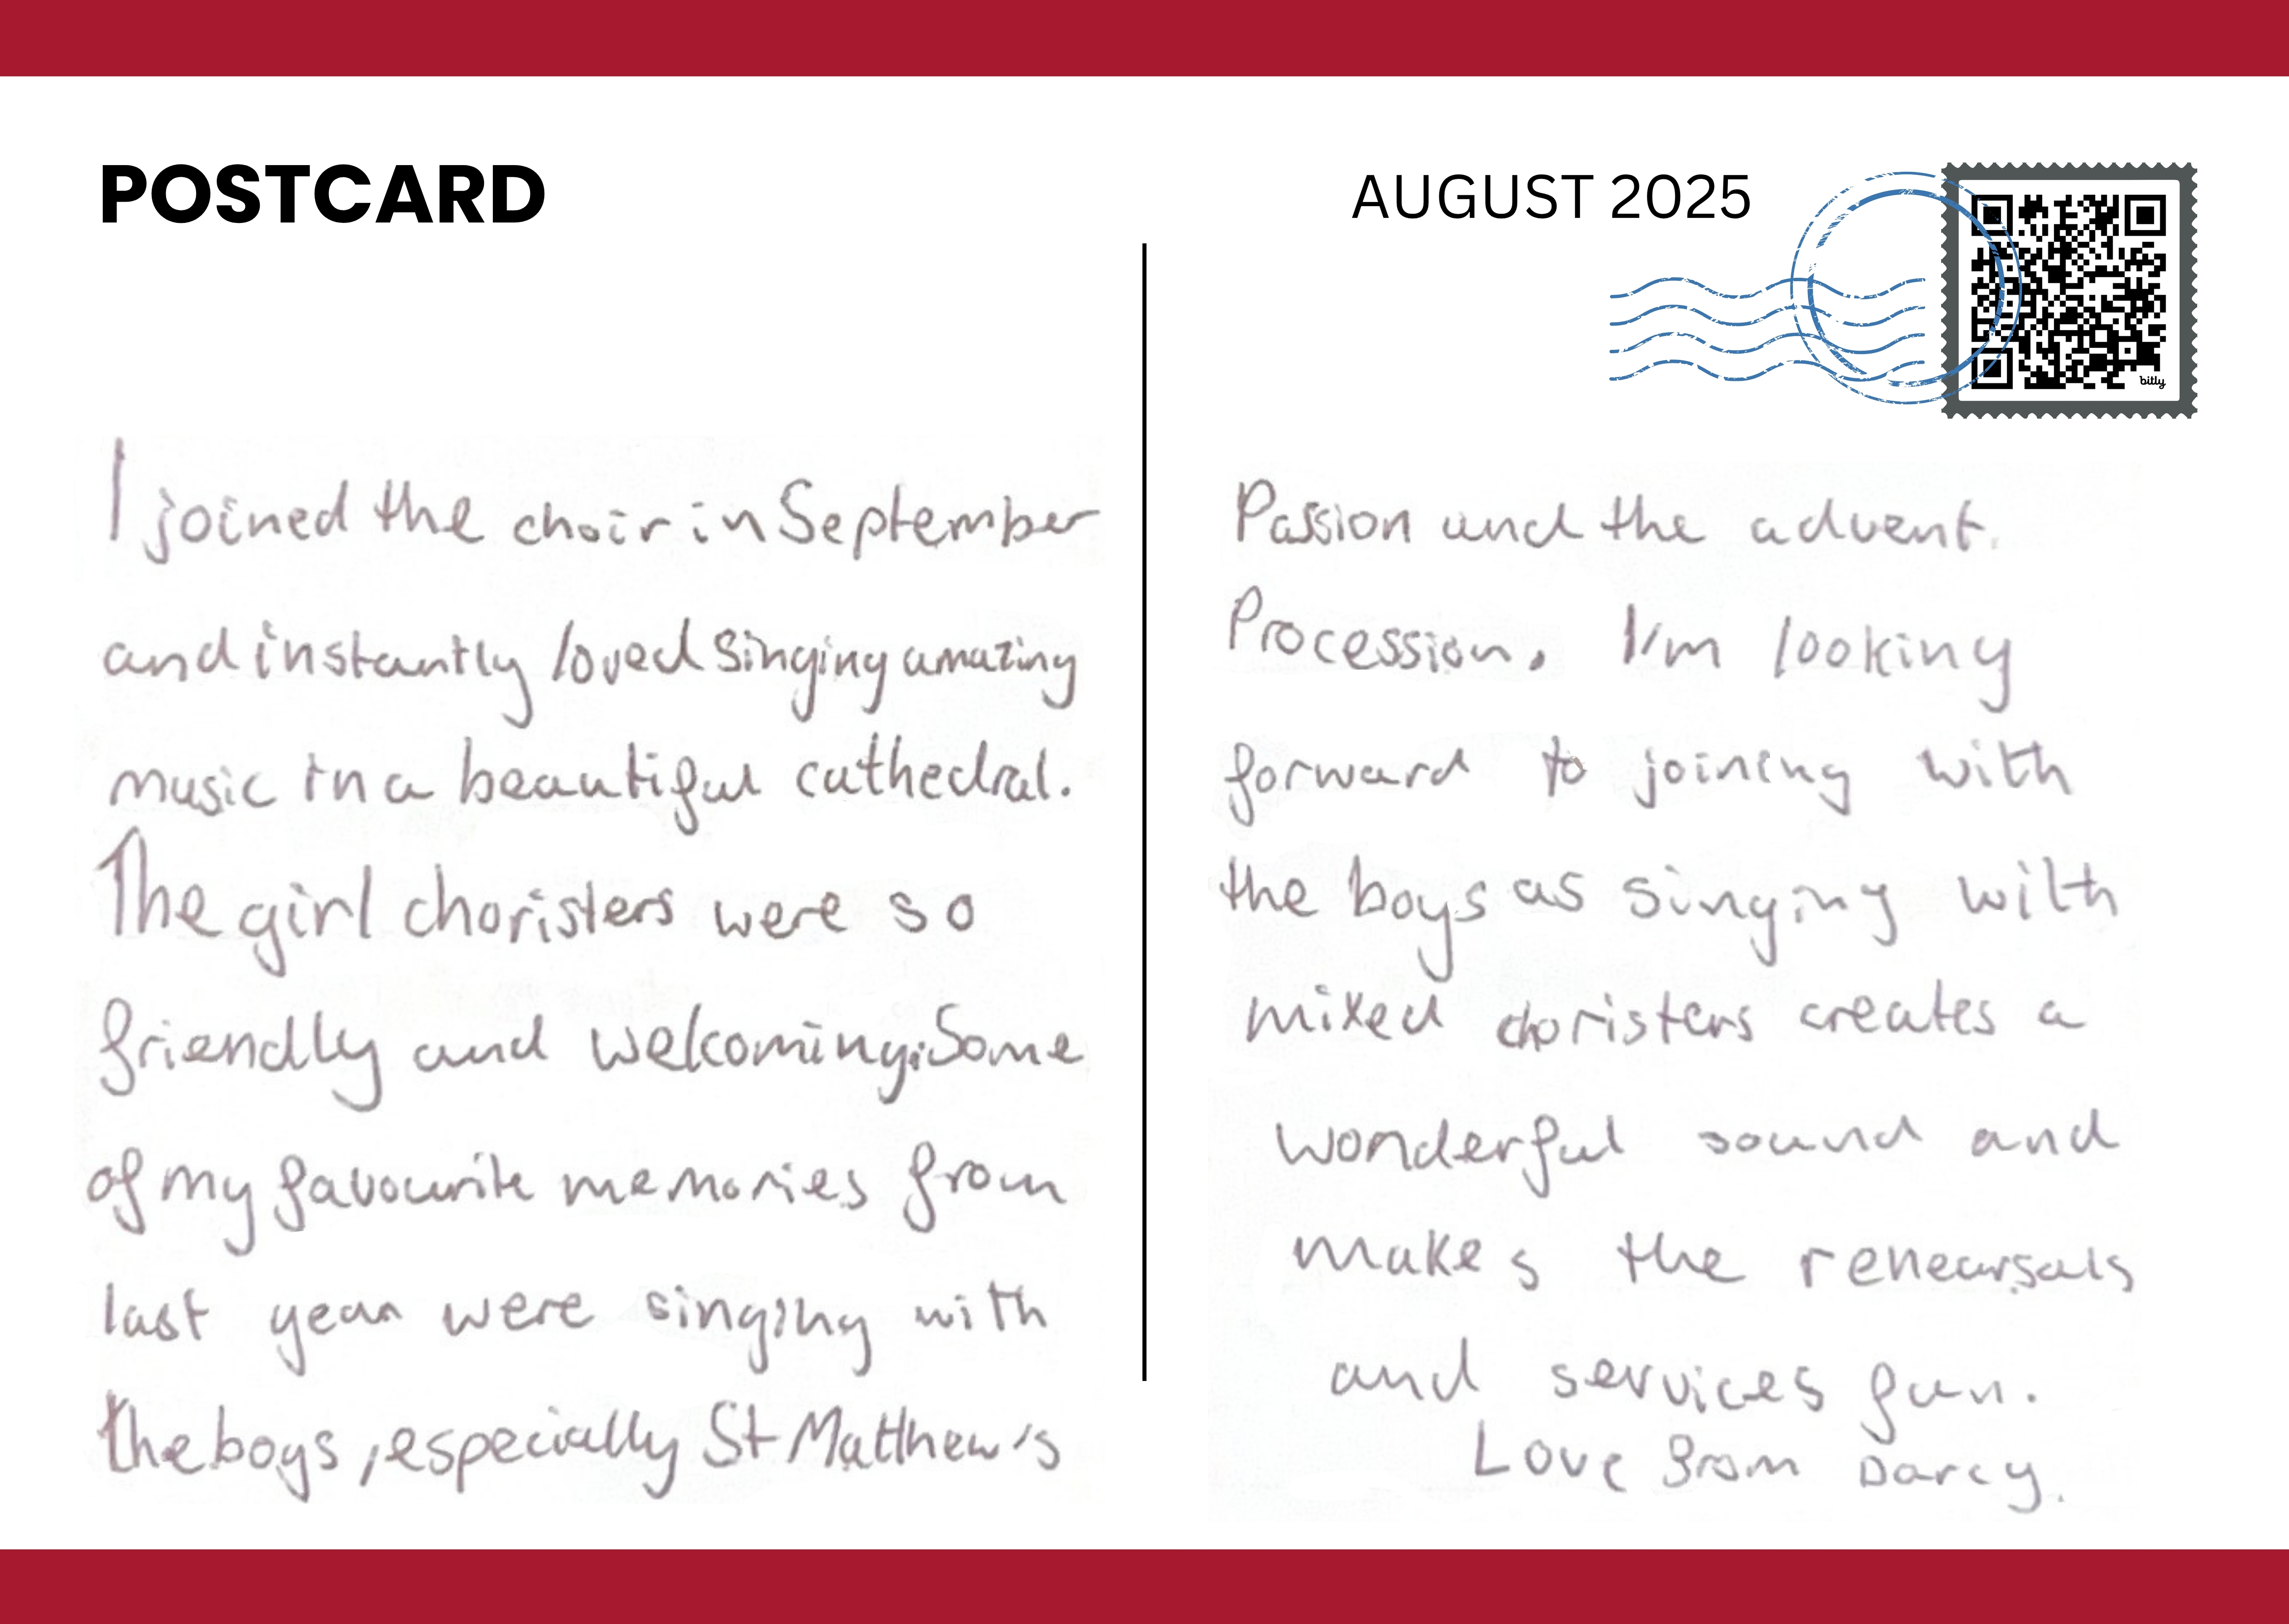 POSTCARD
AUGUST 2025
bitly
I joined the choir in September
and instantly loved singing amazing
music in a beautiful cathedral.
The girl choristers were so
friendly and welcoming. Some
of my favourite memories from
last year were singing with
the boys, especially St Matthew's
Passion and the advent.
Procession. I'm looking
forward to joining with
the boys as singing with
mixed choristers creates a
wonderful sound and
makes the rehearsals
and services fun.
Love from Darcy.